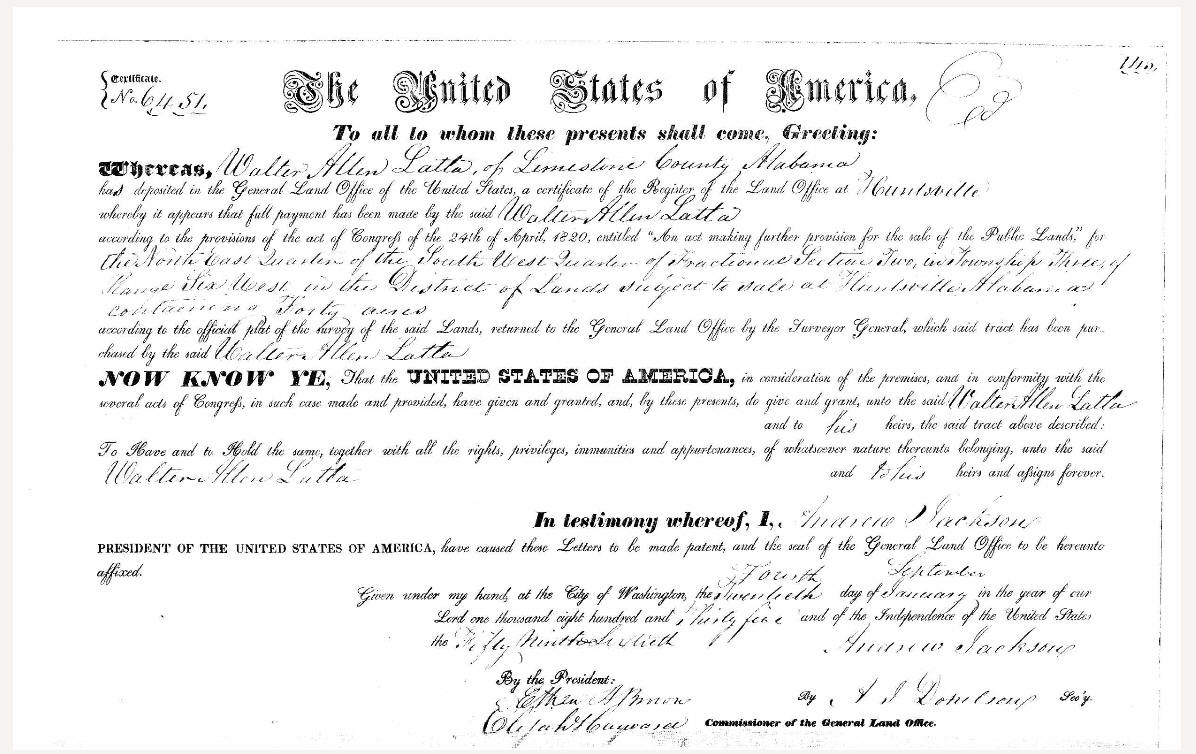 145.
Certificate.
No. 6451.
The United States of America,
To all to whom these presents shall come, Greeting:
Whereas, Walter Allen Latta, of Limestone County, Alabama
has deposited in the General Land Office of the United States, a certificate of the Register of the Land Office at Huntsville
whereby it appears that full payment has been made by the said Walter Allen Latta
according to the provisions of the act of Congress of the 24th of April, 1820, entitled "An act making further provision for the sale of the Public Lands," for
the North East Quarter of the South West Quarter of Fractional Section Two, in Township Three, of
Range Six West, in the District of Lands subject to sale at Huntsville Alabama
containing Forty acres
according to the official plat of the survey of the said Lands, returned to the General Land Office by the Surveyor General, which said tract has been pur-
chased by the said Walter Allen Latta
NOW KNOW YE, That the UNITED STATES OF AMERICA, in consideration of the premises, and in conformity with the
several acts of Congress, in such case made and provided, have given and granted, and, by these presents, do give and grant, unto the said Walter Allen Latta
and to his heirs, the said tract above described:
To Have and to Hold the same, together with all the rights, privileges, immunities and appurtenances, of whatsoever nature thereunto belonging, unto the said
Walter Allen Latta and to his heirs and assigns forever.
In testimony whereof, I, Andrew Jackson
PRESIDENT OF THE UNITED STATES OF AMERICA, have caused these Letters to be made patent, and the seal of the General Land Office to be hereunto
affixed.
Fourth September
Given under my hand, at the City of Washington, the twentieth day of January in the year of our
Lord one thousand eight hundred and thirty five and of the Independence of the United States
the Fifty Ninth Sixtieth
Andrew Jackson
By the President:
Ethan A Brown By A J Donelson Sec'y.
Elijah Hayward Commissioner of the General Land Office.